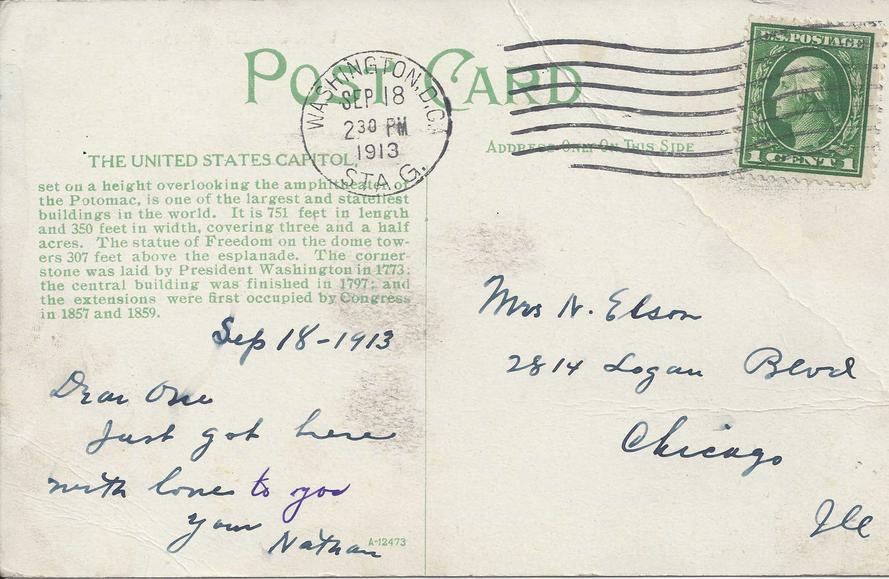 POST CARD
WASHINGTON, D.C.
SEP 18
2 30 PM
1913
STA. G.
U.S. POSTAGE
1 CENT 1
ADDRESS ONLY ON THIS SIDE
THE UNITED STATES CAPITOL,
set on a height overlooking the amphitheater of
the Potomac, is one of the largest and stateliest
buildings in the world. It is 751 feet in length
and 350 feet in width, covering three and a half
acres. The statue of Freedom on the dome tow-
ers 307 feet above the esplanade. The corner-
stone was laid by President Washington in 1773;
the central building was finished in 1797; and
the extensions were first occupied by Congress
in 1857 and 1859.
Sep 18-1913
Dear One
Just got here
with love to you
Your
Nathan
A-12473
Mrs N. Elson
2814 Logan Blvd
Chicago
Ill